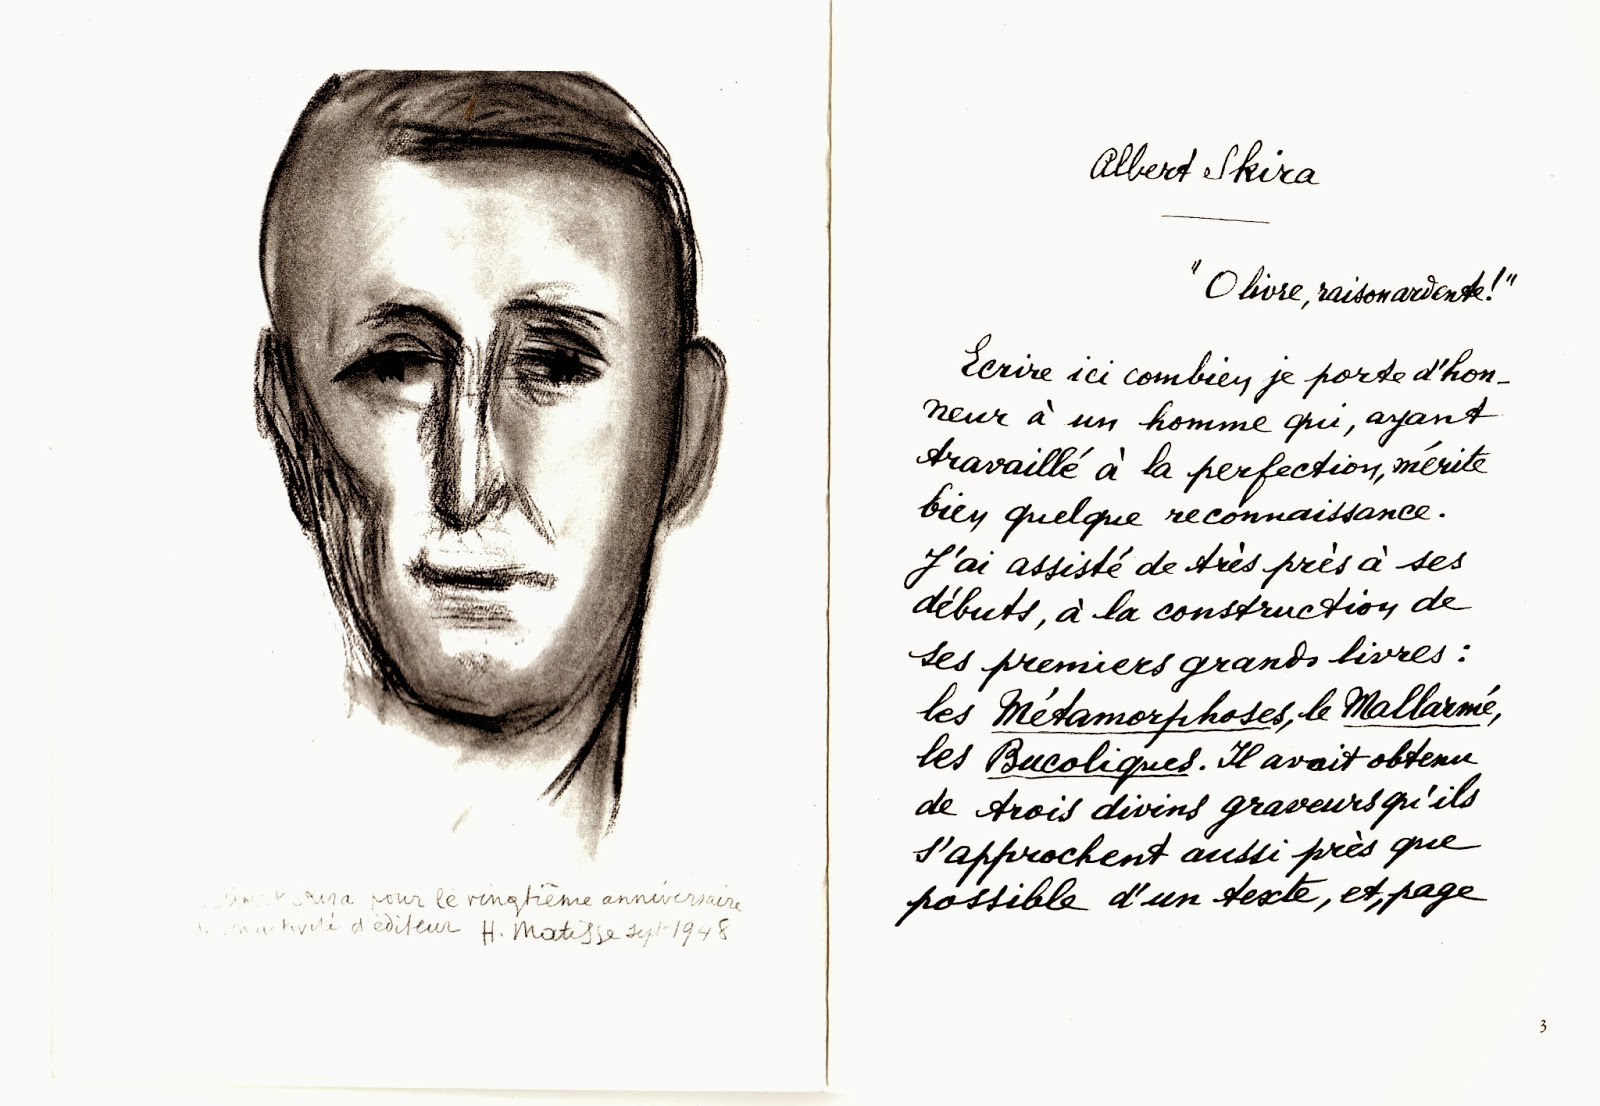 pour le vingtième anniversaire
d'éditeur H. Matisse sept 1948
Albert Skira
"O livre, raison ardente!"
Ecrire ici combien je porte d'hon-
neur à un homme qui, ayant
travaillé à la perfection, mérite
bien quelque reconnaissance.
J'ai assisté de très près à ses
débuts, à la construction de
ses premiers grands livres :
les Métamorphoses, le Mallarmé,
les Bucoliques. Il avait obtenu
de trois divins graveurs qu'ils
s'approchent aussi près que
possible d'un texte, et, page
3